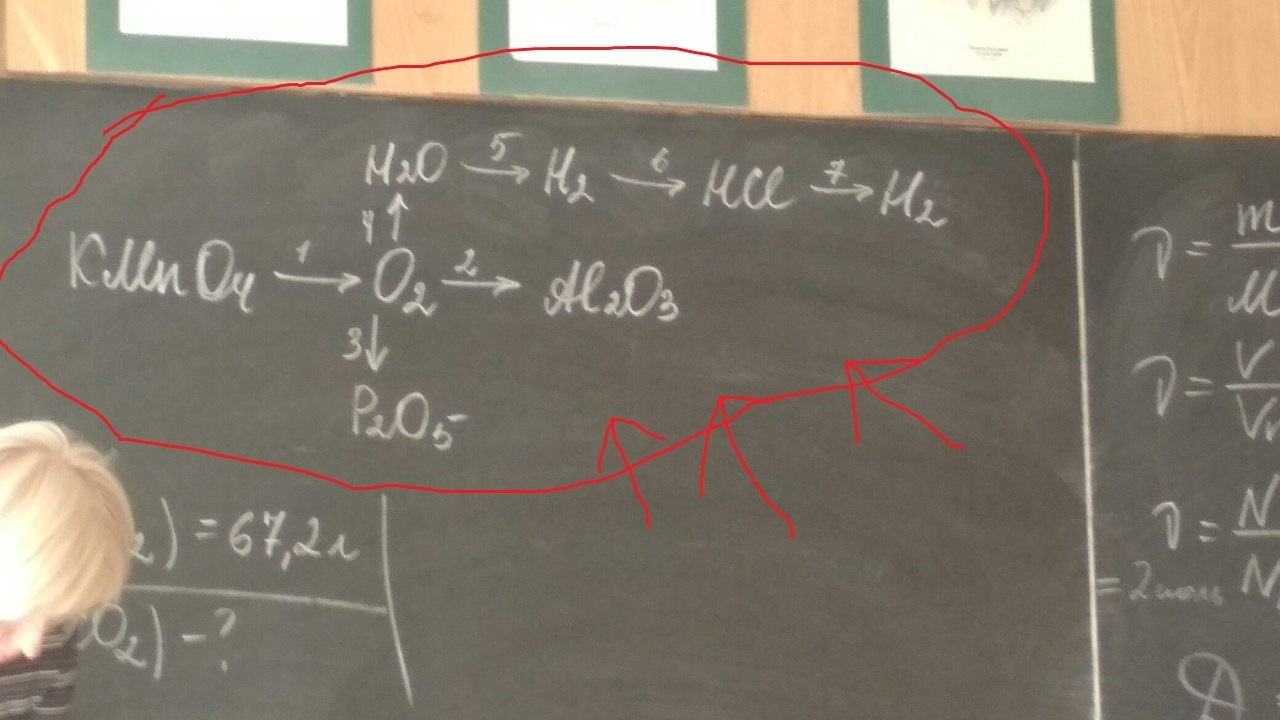 H2O 5→ H2 6→ HCl 7→ H2
4↑
KMnO4 1→ O2 2→ Al2O3
3↓
P2O5
2) = 67,2л
O2) - ?
ν = m
M
ν = V
V
ν = N
= 2моль N